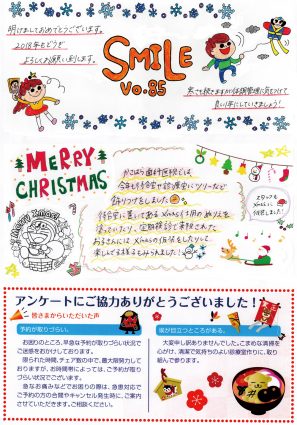 明けましておめでとうございます。
2018年もどうぞ
よろしくお願い致します。
SMILE
Vo.85
寒さも続きますが体調管理に気をつけて
良い1年にしていきましょう!
MERRY
CHRISTMAS
かさはら歯科医院では
今年も待合室や診療室にツリーなど
飾りつけをしました。
待合室に置いてあるXmasくつ用のぬりえを
塗っていたり、定期検診で来院された
お子さんにはXmasの仮装をしたりと
楽しんでる様子もみられました!
スタッフも
Xmasに
仮装しました!
アンケートにご協力ありがとうございました!
皆さまからいただいた声
予約が取りづらい。
お困りのところ、早急な予約が取りづらい状況で
ご迷惑をおかけしております。
限られた時間、チェア数の中で、最大限努力して
おりますが、お時間帯によっては、ご予約が取り
づらい状況でございます。
急なお痛みなどでお困りの際は、急患対応で
ご予約の方の合間やキャンセル発生時に、ご案内
させていただきます。ご相談ください。
床が目立つところがある。
大変申し訳ありませんでした。こまめな清掃を
心がけ、清潔で気持ちのよい診療室作りに、取り
組んで参ります。